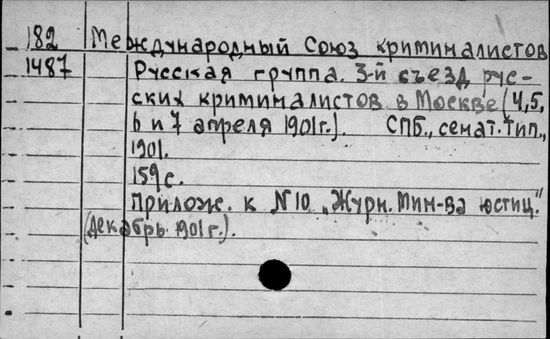 182 Международный Союз криминалистов
1487 Русская группа. 3-й съезд рус-
ских криминалистов в Москве (4,5,
6 и 7 апреля 1901г.). СПБ., сенат. тип.,
1901.
159с.
Прилож. к N 10 „Журн. Мин-ва юстиц."
(Декабрь 1901г.).